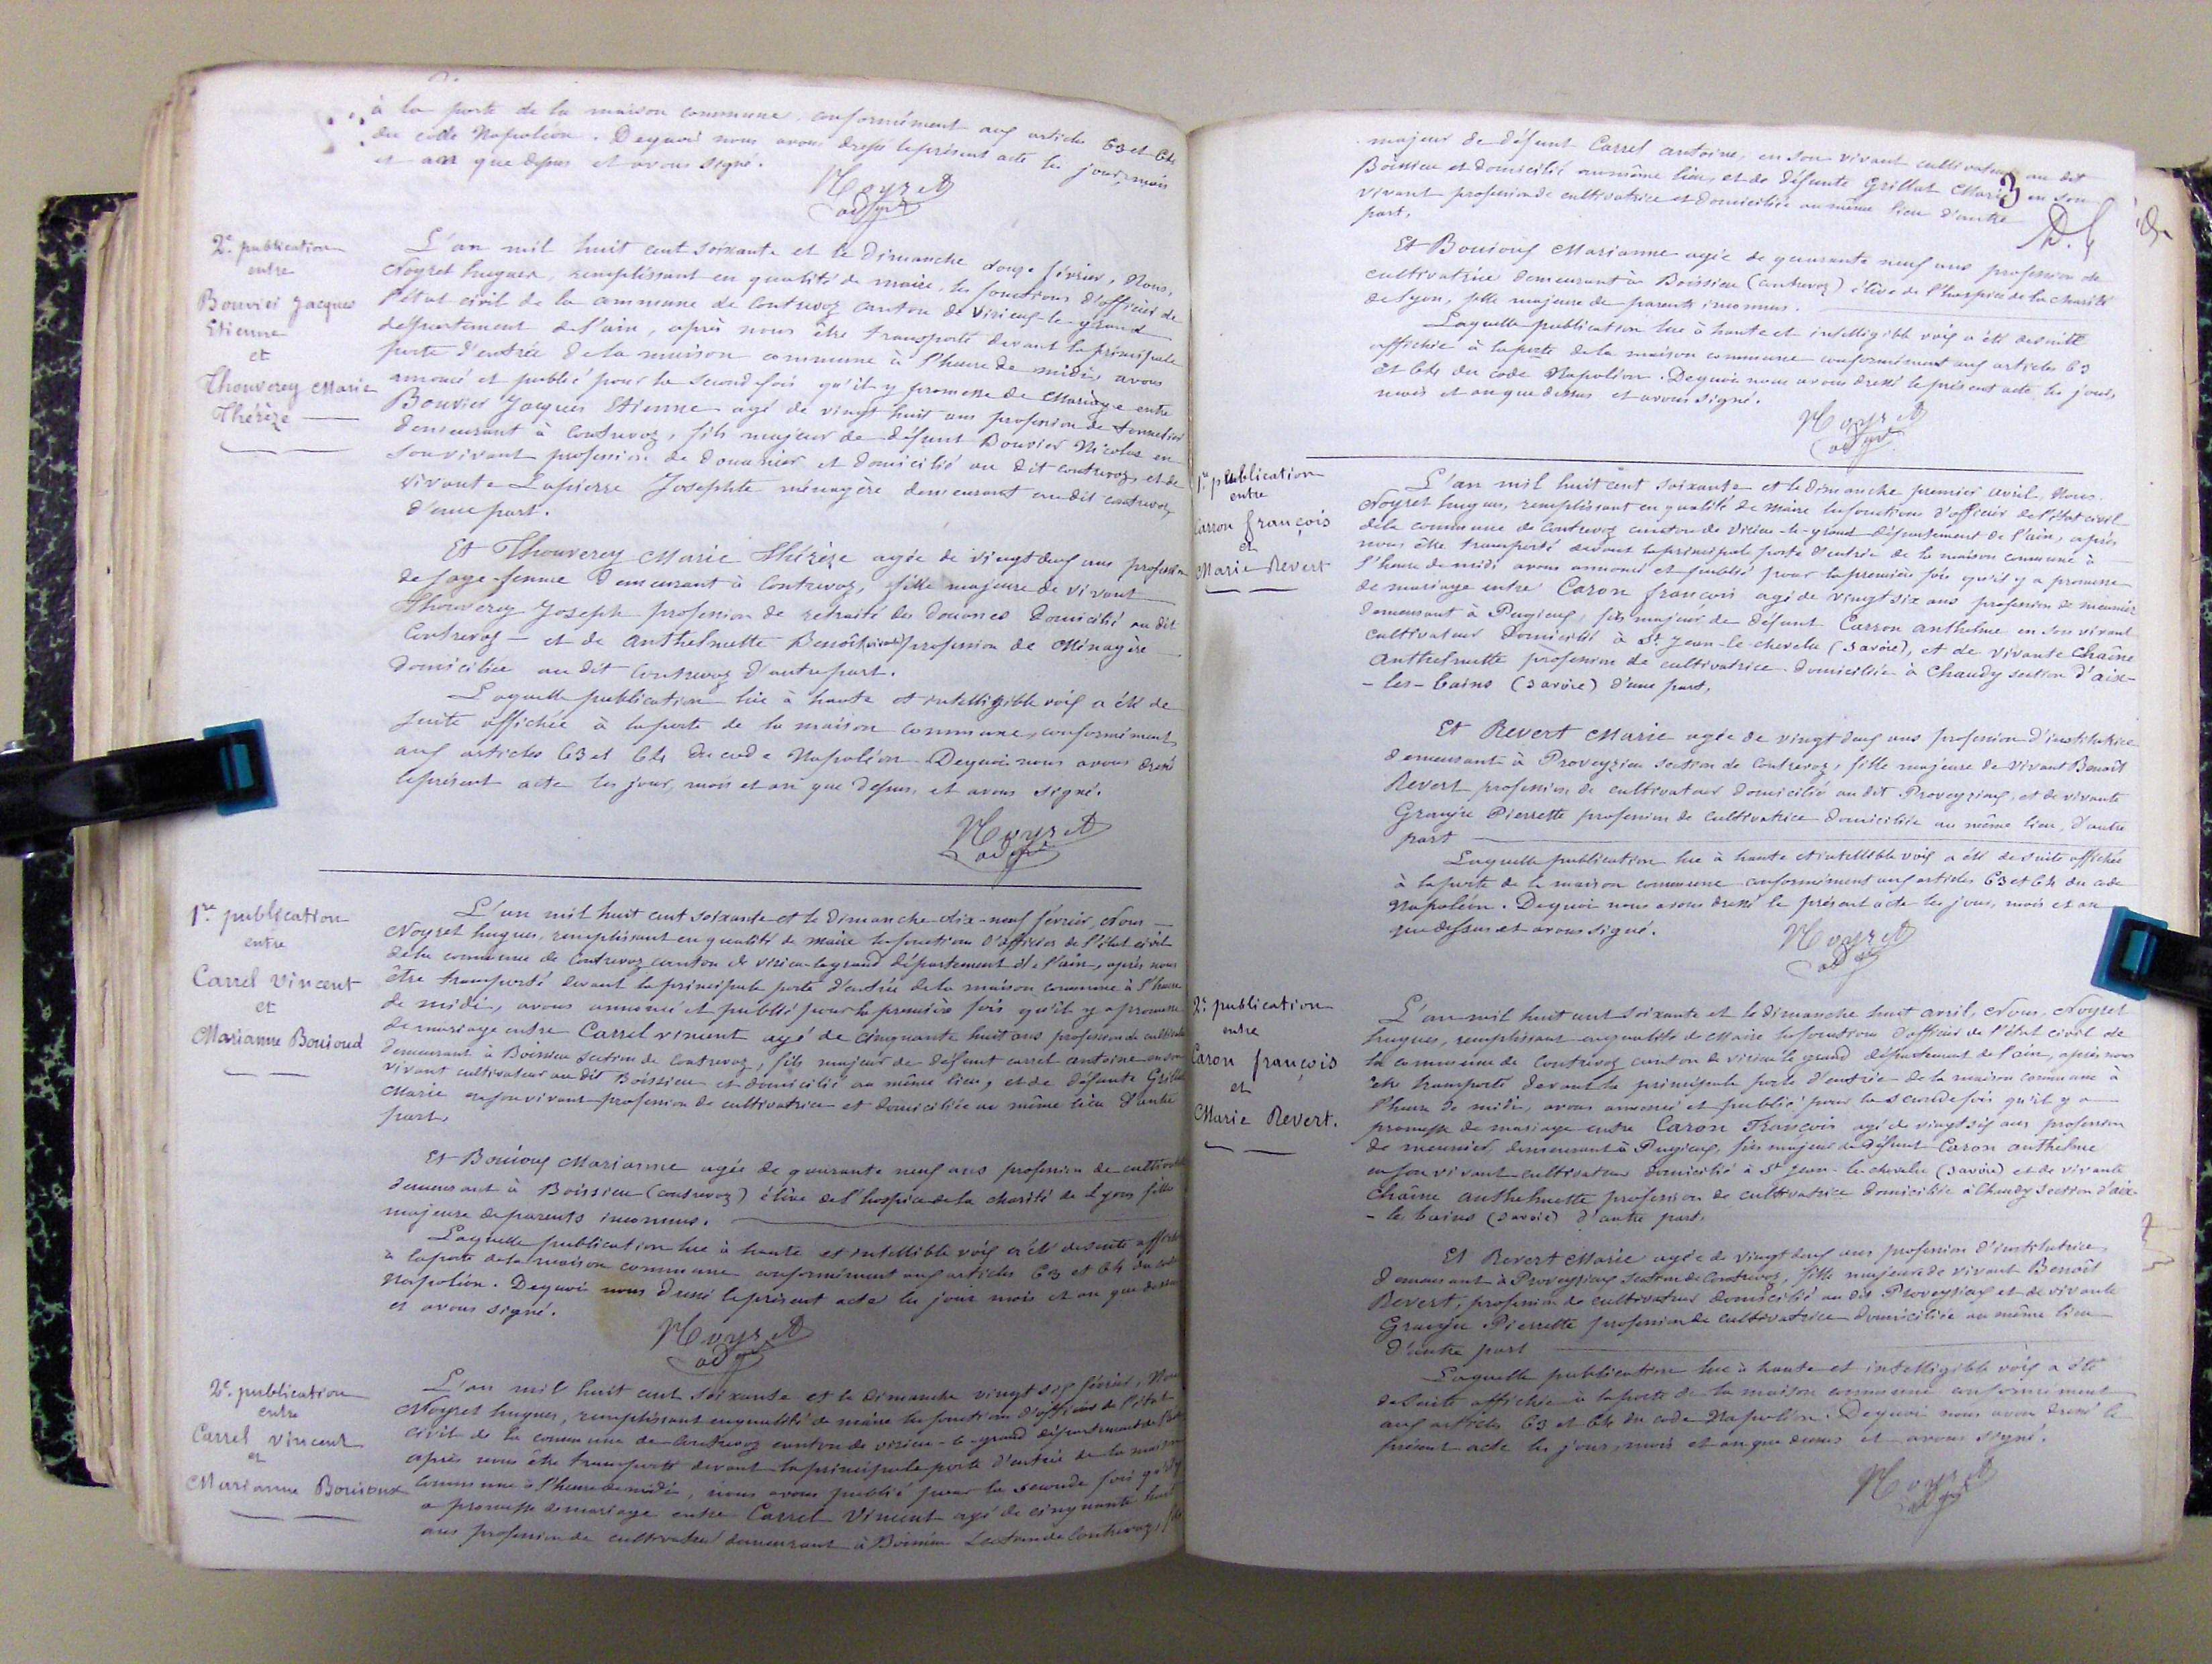 à la porte de la maison commune, conformément aux articles 63 et 64
du code Napoléon. Dequoi nous avons dressé le présent acte les jour, mois
et an que dessus et avons signé.
Noyret
2e. publication
entre
Bouvier Jacques
Etienne
et
Thouverey Marie
Thérèze
L'an mil huit cent soixante et le dimanche douze février, Nous,
Noyret hugues, remplissant en qualité de maire, les fonctions d'officier de
l'état civil de la commune de Contrevoz canton de Virieux-le-grand
département de l'ain, après nous être transporté devant la principale
porte d'entrée de la maison commune à l'heure de midi, avons
annoncé et publié pour la second fois qu'il y promesse de Mariage entre
Bouvier Jacques Etienne agé de vingt huit ans profession de tonnelier
demeurant à Contrevoz, fils majeur de défunt Bouvier Nicolas en
son vivant profession de douanier et domicilié au dit contrevoz, et de
vivante Lapierre Josephte ménagère demeurant au dit contrevoz
d'une part.
Et Thouverey Marie Thérèze agée de vingt deux ans profession
de sage-femme demeurant à Contrevoz, fille majeure de vivant
Thouverey Joseph profession de retraité des douanes domicilié au dit
Contrevoz - et de anthelmette Benoît profession de Ménagère
domiciliée au dit Contrevoz d'autre part.
Laquelle publication lue à haute et intelligible voix a été de
suite affichée à la porte de la maison commune, conformément
aux articles 63 et 64 du code Napoléon. Dequoi nous avons dressé
le présent acte les jour, mois et an que dessus, et avons signé.
Noyret
1re publication
entre
Carrel Vincent
et
Marianne Boujoud
L'an mil huit cent soixante et le dimanche dix-neuf février, Nous
Noyret hugues, remplissant en qualité de maire les fonctions d'officier de l'état civil
de la commune de Contrevoz canton de virieu-le grand département de l'ain, après nous
être transporté devant la principale porte d'entrée de la maison commune à l'heure
de midi, avons annoncé et publié pour la première fois qu'il y a promesse
de mariage entre Carrel vincent agé de cinquante huit ans profession de
demeurant à Boissieu section de Contrevoz, fils majeur de défunt carrel antoine en son
vivant cultivateur au dit Boissieu et domicilié au même lieu, et de défunte
Marie en son vivant profession de cultivatrice et domiciliée au même lieu d'autre
part,
Et Boujoux Marianne agée de quarante neuf ans profession de
demeurant à Boissieu (contrevoz) élève de l'hospice de la charité de Lyon fille
majeure de parents inconnus.
Laquelle publication lue à haute et intellible voix a été de suite
à la porte de la maison commune conformément aux articles 63 et 64 du code
Napoléon. Dequoi nous dressé le présent acte les jour mois et an que dessus
et avons signé.
Noyret
2e. publication
entre
Carrel Vincent
et
Marianne Boujoux
L'an mil huit cent soixante et le dimanche vingt six février, Nous
Noyret hugues, remplissant en qualité de maire les fonctions d'officier de l'état
civil de la commune de Contrevoz canton de virieu-le-grand département de
après nous être transporté devant la principale porte d'entrée de la maison
commune à l'heure de midi, nous avons publié pour la seconde fois qu'il y
a promesse de mariage entre Carrel Vincent agé de cinquante huit
ans profession de cultivateur demeurant à Boissieu section de Contrevoz,
3
majeur de défunt Carrel antoine, en son vivant cultivateur au dit
Boissieu et domicilié au même lieu, et de défunte Grillat Marie en son
vivant profession de cultivatrice et domiciliée au même lieu d'autre
part,
Et Boujoux Marianne agée de quarante neuf ans profession de
cultivatrice demeurant à Boissieu (contrevoz) élève de l'hospice de la charité
de Lyon, fille majeure de parents inconnus.
Laquelle publication lue à haute et intelligible voix a été de suite
affichée à la porte de la maison commune conformément aux articles 63
et 64 du code Napoléon. Dequoi nous avons dressé le présent acte les jour,
mois et an que dessus et avons signé.
Noyret
1re publication
entre
Carron françois
et
Marie Revert
L'an mil huit cent soixante et le dimanche premier avril, Nous
Noyret hugues, remplissant en qualité de Maire les fonctions d'officier de l'état civil
de la commune de Contrevoz canton de virieu-le-grand département de l'ain, après
nous être transporté devant la principale porte d'entrée de la maison commune à
l'heure de midi avons annoncé et publié pour la première fois qu'il y a promesse
de mariage entre Caron françois agé de vingt six ans profession de meunier
demeurant à Pugieux, fils majeur de défunt Carron anthelme en son vivant
cultivateur domicilié à St. Jean-le chevelu (savoie), et de vivante Chaîne
anthelmette profession de cultivatrice domiciliée à Chaudy section d'aix-
-les-bains (savoie) d'une part,
Et Revert Marie agée de vingt deux ans profession d'institutrice
demeurant à Proveyzieu section de Contrevoz, fille majeure de vivant Benoît
Revert profession de cultivateur domicilié au dit Proveyzieux, et de vivante
Pierrette profession de cultivatrice domiciliée au même lieu, d'autre
part
Laquelle publication lue à haute et intellible voix a été de suite affichée
à la porte de la maison commune conformément aux articles 63 et 64 du code
Napoléon. Dequoi nous avons dressé le présent acte les jour, mois et an
que dessus et avons signé.
Noyret
2e. publication
entre
Caron françois
et
Marie Revert.
L'an mil huit cent soixante et le dimanche huit avril, Nous, Noyret
hugues, remplissant en qualité de Maire les fonctions d'officier de l'état civil de
la commune de Contrevoz canton de virieu le grand département de l'ain, après nous
être transporté devant la principale porte d'entrée de la maison commune à
l'heure de midi, avons annoncé et publié pour la seconde fois qu'il y a
promesse de mariage entre Caron François agé de vingt six ans profession
de meunier, demeurant à Pugieux, fils majeur de défunt Caron anthelme
en son vivant cultivateur domicilié à St Jean-le chevelu (savoie) et de vivante
Chaîne anthelmette profession de cultivatrice domiciliée à Chaudy section d'aix-
-les bains (savoie) d'autre part,
Et Revert Marie agée de vingt deux ans profession d'institutrice,
demeurant à Proveyzieux section de Contrevoz, fille majeure de vivant Benoît
Revert, profession de cultivateur domicilié au dit Proveyzieux et de vivante
Pierrette profession de cultivatrice domiciliée au même lieu
d'autre part
Laquelle publication lue à haute et intelligible voix a été
de suite affichée à la porte de la maison commune conformément
aux articles 63 et 64 du code Napoléon. Dequoi nous avons dressé le
présent acte les jour, mois et an que dessus et avons signé.
Noyret